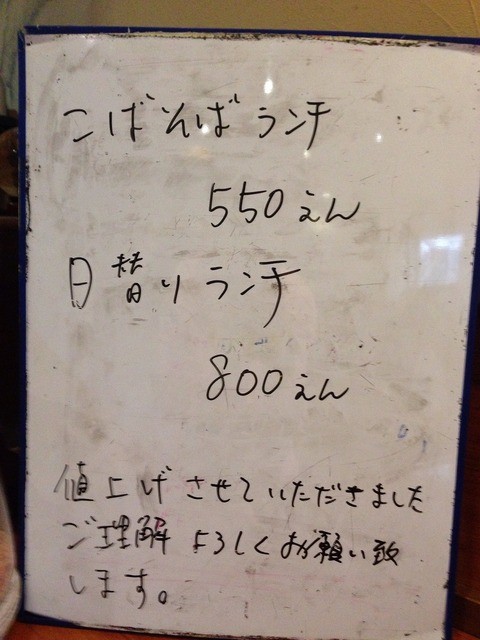 こばそばランチ
550えん
日替りランチ
800えん
値上げさせていただきました
ご理解よろしくお願い致
します。